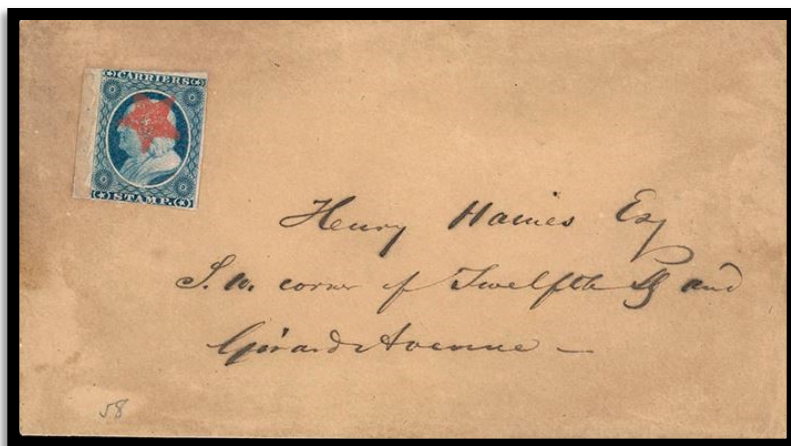 CARRIERS
STAMP.
Henry Haines Esq
S. W. corner of Twelfth St and
Girard Avenue –
58